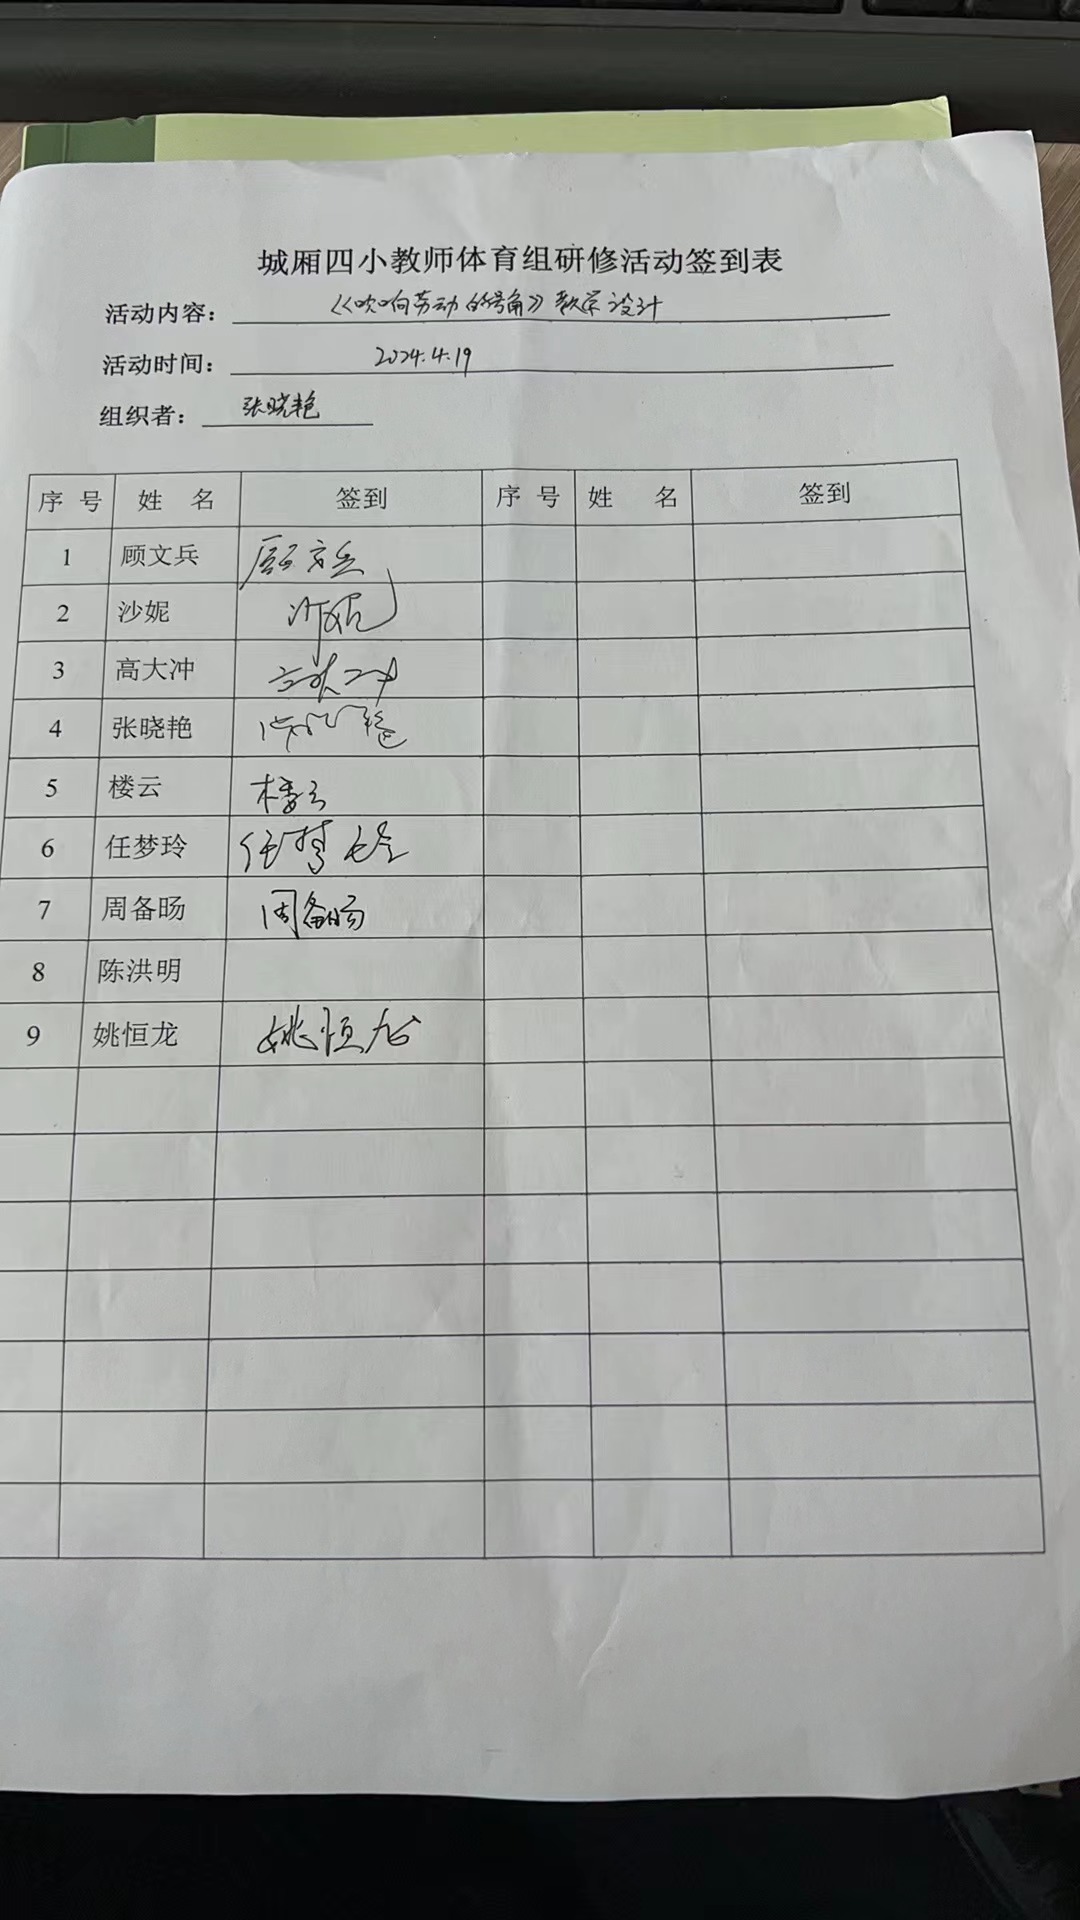 城厢四小教师体育组研修活动签到表
活动内容：《吹响劳动的号角》教学设计
活动时间：2024.4.19
组织者：张晓艳
序号 姓名 签到 序号 姓名 签到
1 顾文兵 顾文兵
2 沙妮 沙妮
3 高大冲 高大冲
4 张晓艳 张晓艳
5 楼云 楼云
6 任梦玲 任梦玲
7 周备旸 周备旸
8 陈洪明
9 姚恒龙 姚恒龙